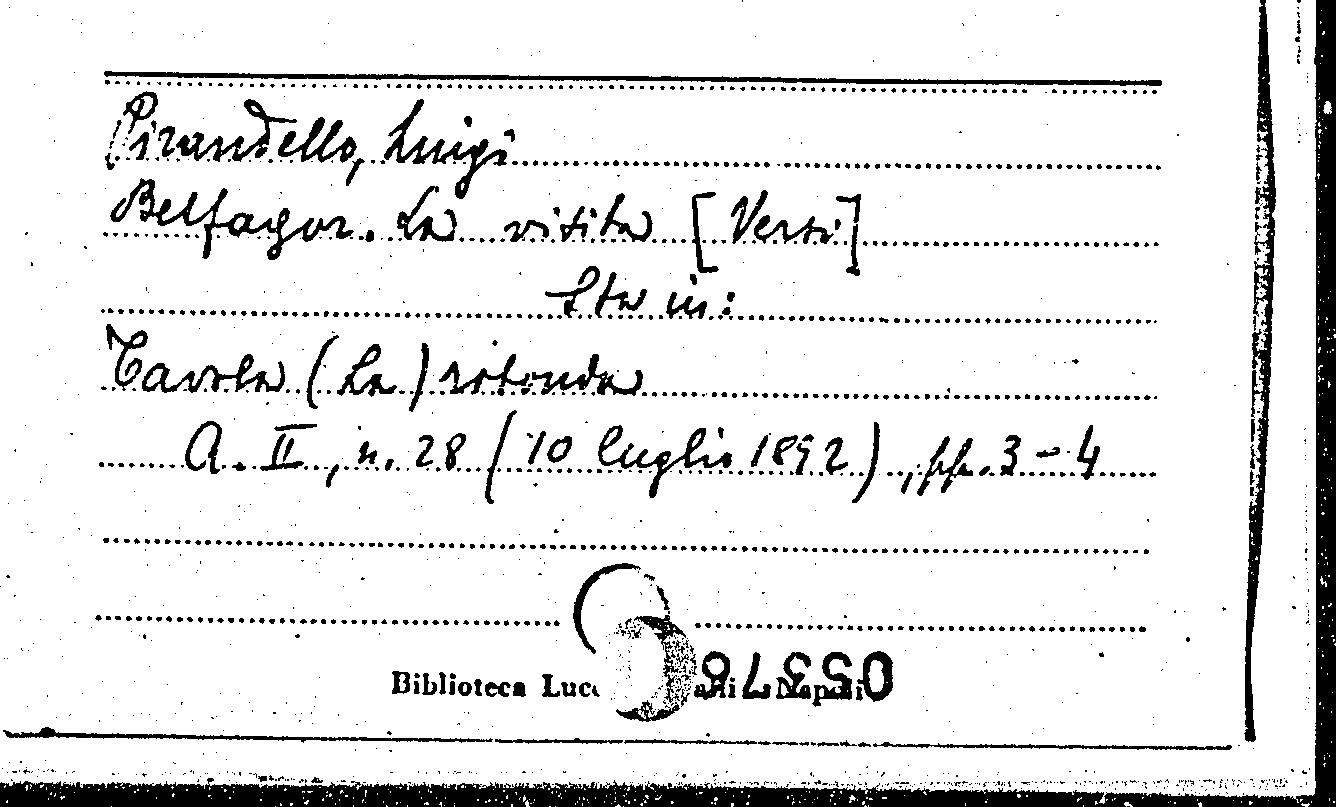 Pirandello, Luigi
Belfagor. La visita [Versi]
Sta in:
Tavola (La) rotonda
A. II, n. 28 (10 luglio 1892), pp. 3-4
Biblioteca